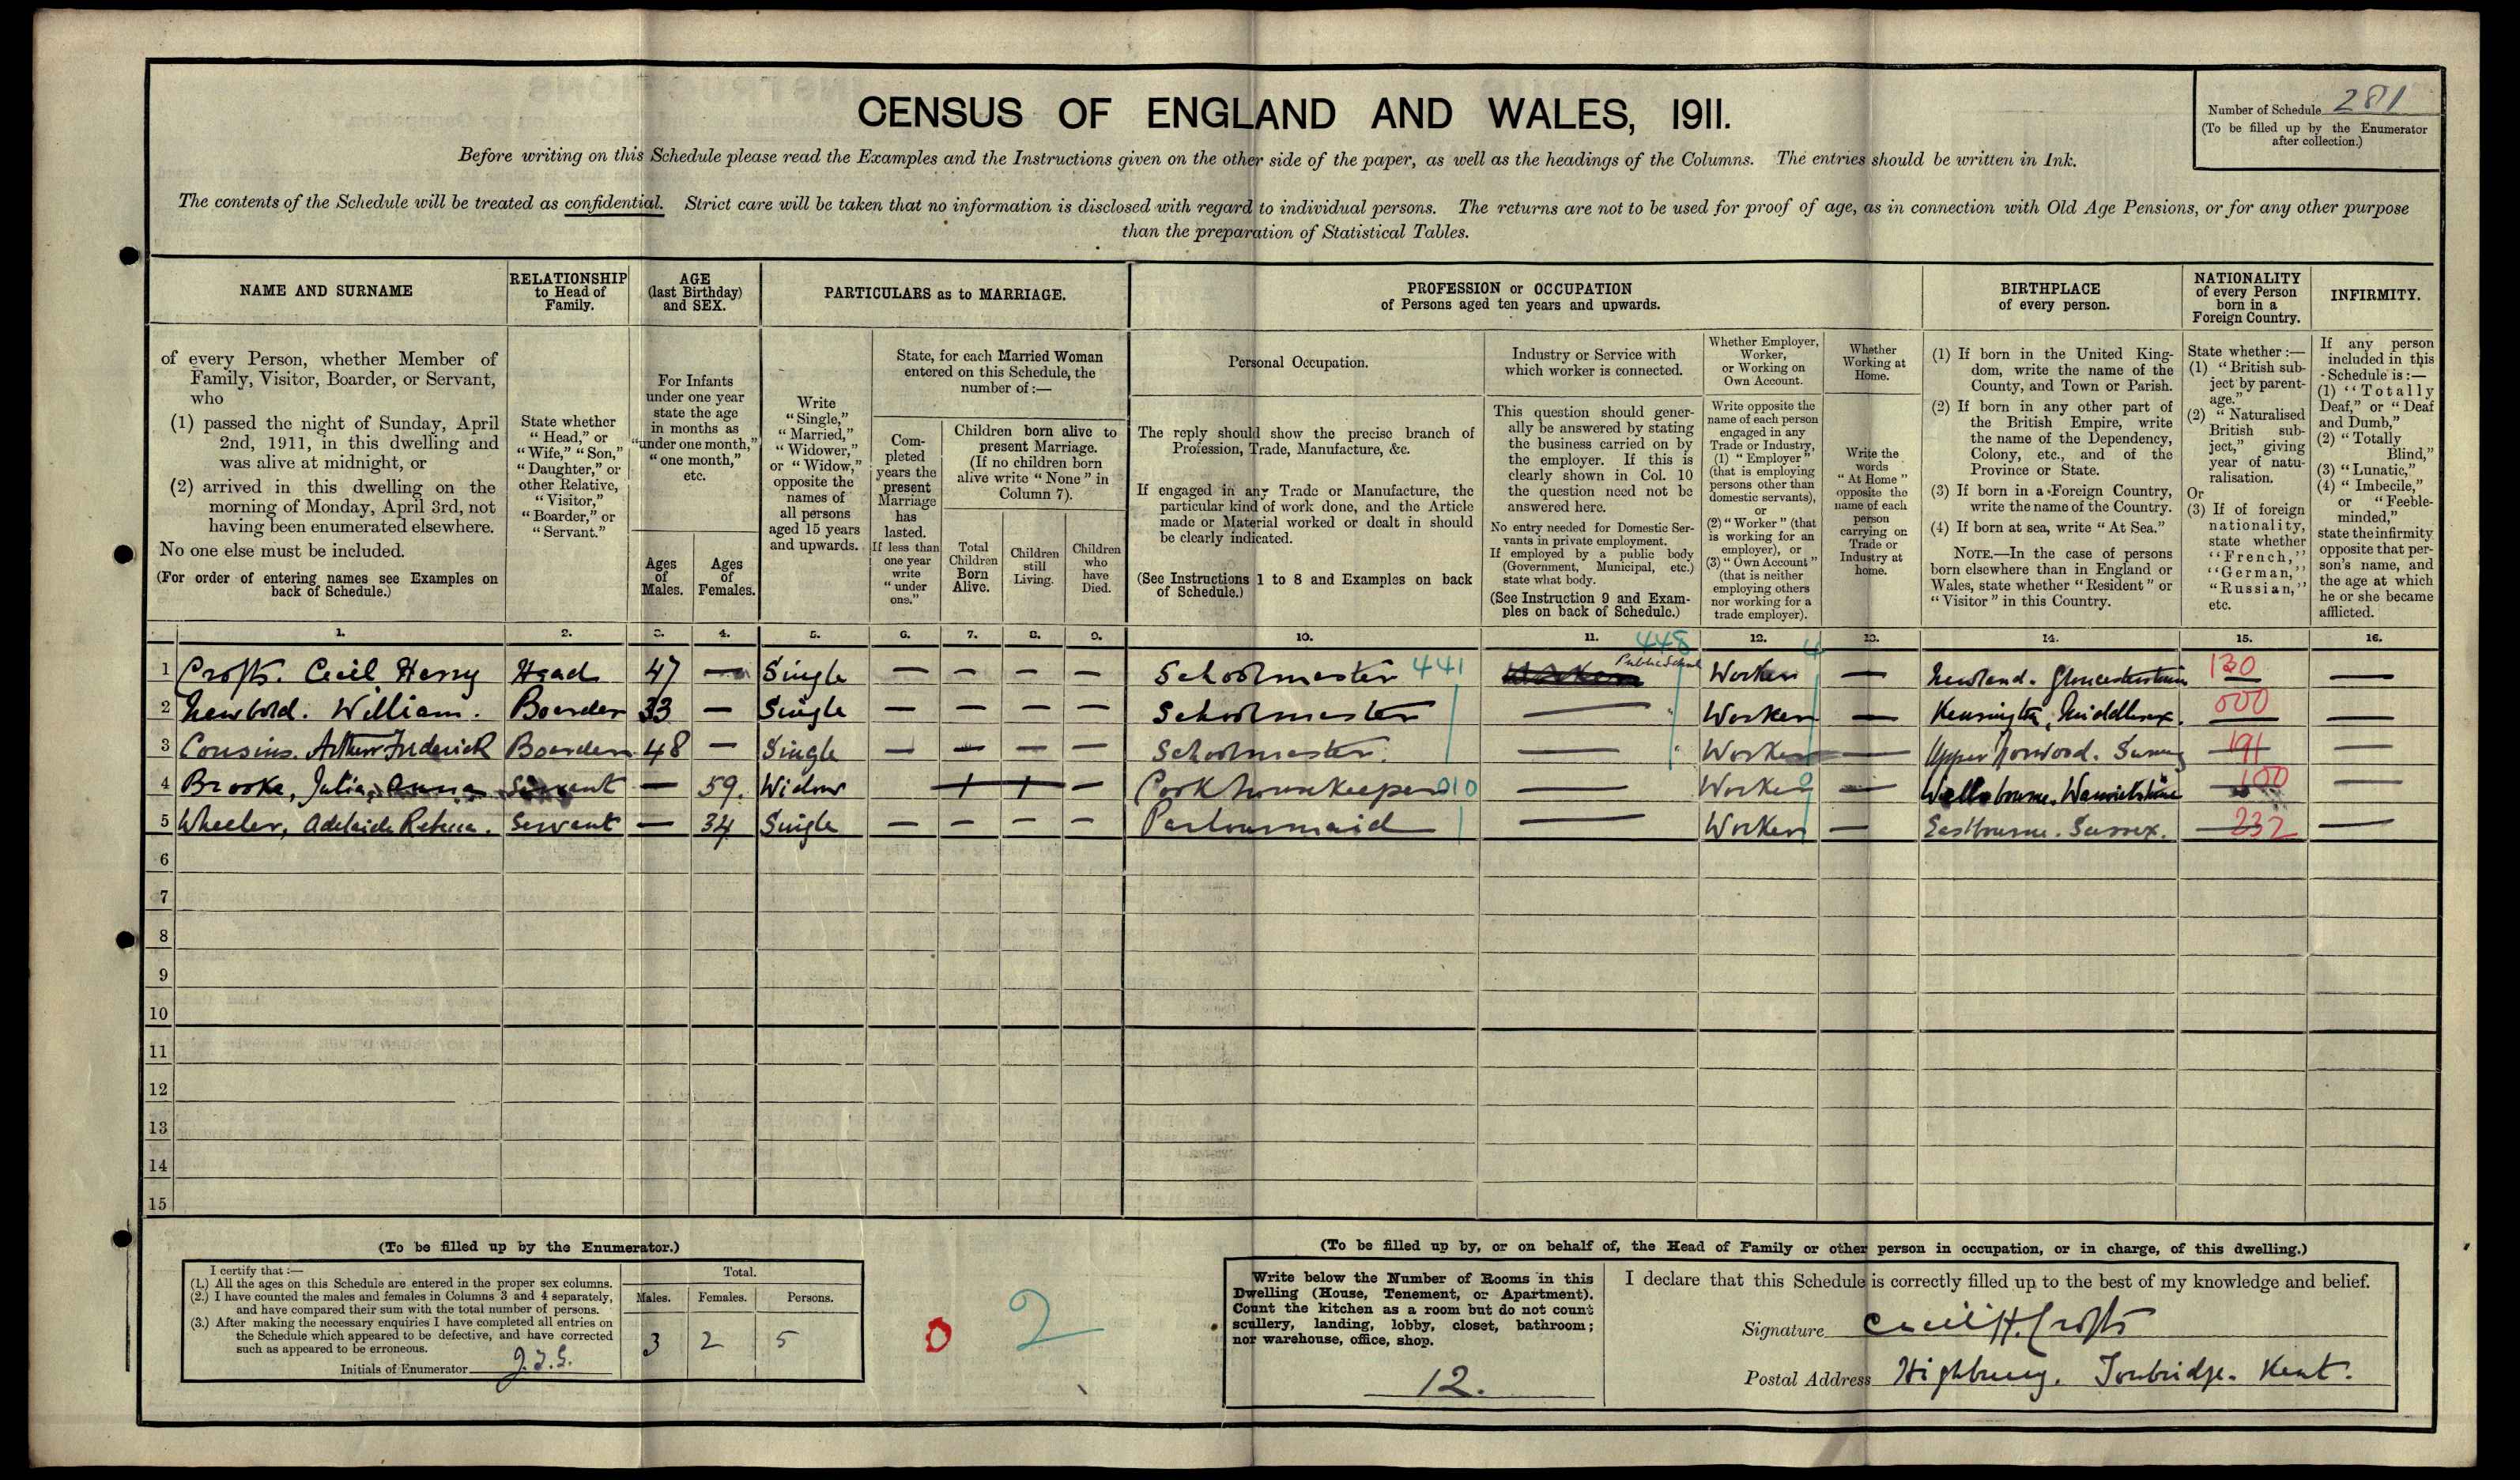 CENSUS OF ENGLAND AND WALES, 1911.
Number of Schedule 281
(To be filled up by the Enumerator
after collection.)
Before writing on this Schedule please read the Examples and the Instructions given on the other side of the paper, as well as the headings of the Columns. The entries should be written in Ink.
The contents of the Schedule will be treated as confidential. Strict care will be taken that no information is disclosed with regard to individual persons. The returns are not to be used for proof of age, as in connection with Old Age Pensions, or for any other purpose
than the preparation of Statistical Tables.
NAME AND SURNAME
of every Person, whether Member of
Family, Visitor, Boarder, or Servant,
who
(1) passed the night of Sunday, April
2nd, 1911, in this dwelling and
was alive at midnight, or
(2) arrived in this dwelling on the
morning of Monday, April 3rd, not
having been enumerated elsewhere.
No one else must be included.
(For order of entering names see Examples on
back of Schedule.)
RELATIONSHIP
to Head of
Family.
State whether
"Head," or
"Wife," "Son,"
"Daughter," or
other Relative,
"Visitor,"
"Boarder," or
"Servant."
AGE
(last Birthday)
and SEX.
For Infants
under one year
state the age
in months as
"under one month,"
"one month,"
etc.
Ages
of
Males.
Ages
of
Females.
PARTICULARS as to MARRIAGE.
Write
"Single,"
"Married,"
"Widower,"
or "Widow,"
opposite the
names of
all persons
aged 15 years
and upwards.
State, for each Married Woman
entered on this Schedule, the
number of:—
Com-
pleted
years the
present
Marriage
has
lasted.
If less than
one year
write
"under
one."
Children born alive to
present Marriage.
(If no children born
alive write "None" in
Column 7).
Total
Children
Born
Alive.
Children
still
Living.
Children
who
have
Died.
PROFESSION or OCCUPATION
of Persons aged ten years and upwards.
Personal Occupation.
The reply should show the precise branch of
Profession, Trade, Manufacture, &c.
If engaged in any Trade or Manufacture, the
particular kind of work done, and the Article
made or Material worked or dealt in should
be clearly indicated.
(See Instructions 1 to 8 and Examples on back
of Schedule.)
Industry or Service with
which worker is connected.
This question should gener-
ally be answered by stating
the business carried on by
the employer. If this is
clearly shown in Col. 10
the question need not be
answered here.
No entry needed for Domestic Ser-
vants in private employment.
If employed by a public body
(Government, Municipal, etc.)
state what body.
(See Instruction 9 and Exam-
ples on back of Schedule.)
Whether Employer,
Worker,
or Working on
Own Account.
Write opposite the
name of each person
engaged in any
Trade or Industry,
(1) "Employer"
(that is employing
persons other than
domestic servants),
or
(2) "Worker" (that
is working for an
employer), or
(3) "Own Account"
(that is neither
employing others
nor working for a
trade employer).
Whether
Working at
Home.
Write the
words
"At Home"
opposite the
name of each
person
carrying on
Trade or
Industry at
home.
BIRTHPLACE
of every person.
(1) If born in the United King-
dom, write the name of the
County, and Town or Parish.
(2) If born in any other part of
the British Empire, write
the name of the Dependency,
Colony, etc., and of the
Province or State.
(3) If born in a Foreign Country,
write the name of the Country.
(4) If born at sea, write "At Sea."
NOTE.—In the case of persons
born elsewhere than in England or
Wales, state whether "Resident" or
"Visitor" in this Country.
NATIONALITY
of every Person
born in a
Foreign Country.
State whether:—
(1) "British sub-
ject by parent-
age."
(2) "Naturalised
British sub-
ject," giving
year of natu-
ralisation.
Or
(3) If of foreign
nationality,
state whether
"French,"
"German,"
"Russian,"
etc.
INFIRMITY.
If any person
included in this
Schedule is:—
(1) "Totally
Deaf," or "Deaf
and Dumb,"
(2) "Totally
Blind,"
(3) "Lunatic,"
(4) "Imbecile,"
or "Feeble-
minded,"
state the infirmity
opposite that per-
son's name, and
the age at which
he or she became
afflicted.
1. 2. 3. 4. 5. 6. 7. 8. 9. 10. 11. 12. 13. 14. 15. 16.
448 4
1 Crofts. Cecil Henry Head 47 — Single — — — — Schoolmaster 441 Public School Worker — Newland. Gloucestershire 130 —
2 Newbold. William. Boarder 33 — Single — — — — Schoolmaster — " Worker — Kensington, Middlesex. 000 —
3 Cousins. Arthur Frederick Boarder 48 — Single — — — — Schoolmaster. — " Worker — Upper Norwood. Surrey 191 —
4 Brooke, Julia, Anna Servant — 59. Widow 1 1 — Cook housekeeper 010 — Worker 0 — Wellesbourne. Warwickshire 100 —
5 Wheeler, Adelaide Rebecca. Servant — 34 Single — — — — Parlourmaid — Worker — Eastbourne. Sussex. 232 —
6
7
8
9
10
11
12
13
14
15
(To be filled up by the Enumerator.)
I certify that:—
(1.) All the ages on this Schedule are entered in the proper sex columns.
(2.) I have counted the males and females in Columns 3 and 4 separately,
and have compared their sum with the total number of persons.
(3.) After making the necessary enquiries I have completed all entries on
the Schedule which appeared to be defective, and have corrected
such as appeared to be erroneous.
Initials of Enumerator
Total.
Males. Females. Persons.
3 2 5
0 2
(To be filled up by, or on behalf of, the Head of Family or other person in occupation, or in charge, of this dwelling.)
Write below the Number of Rooms in this
Dwelling (House, Tenement, or Apartment).
Count the kitchen as a room but do not count
scullery, landing, lobby, closet, bathroom;
nor warehouse, office, shop.
12.
I declare that this Schedule is correctly filled up to the best of my knowledge and belief.
Signature Cecil H. Crofts
Postal Address Highbury. Tonbridge. Kent.